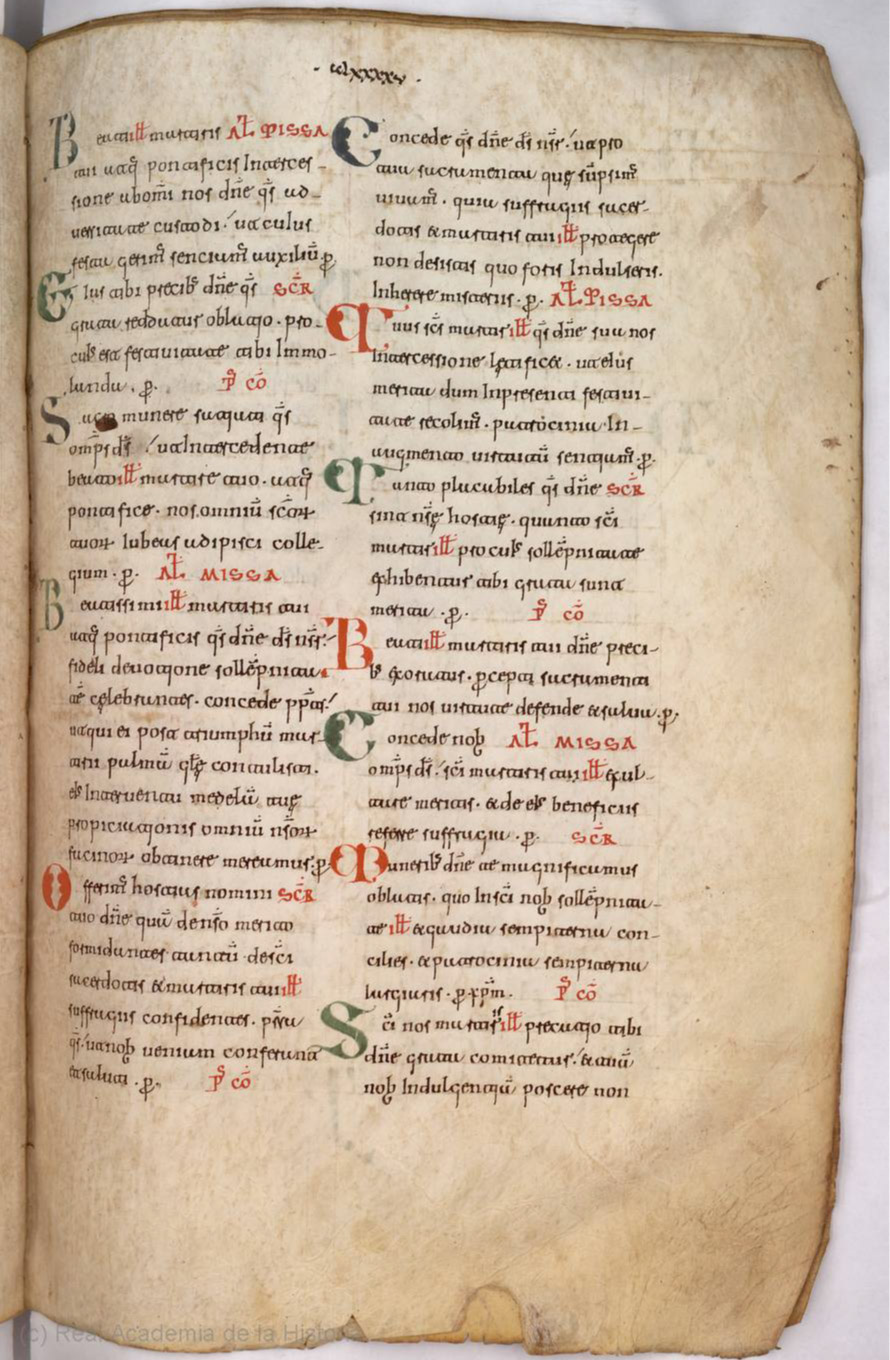 · clxxxxv ·
Beati ill̅ martiris AL̅ MISSA
tui atq̅ pontificis Interces-
sione ubom̅i nos dn̅e qs̅ ad-
uersitate custodi / ut cultus
festa gerim̅ senciam̅ auxiliu̅ p̲.
Eius tibi precib; dn̅e qs̅ SCR̅
grata reddatur oblatio · pro-
cui; est festiuitate tibi Immo-
landa · p̲. P̅ CO̅
Sacro munere satiati qs̅
omp̅s ds̅ / ut Intercedente
beato ill̅ martire tuo · atq̅
pontifice · nos omniu̅ sc̅or
tuor labeas adipisci colle-
gium · p̲. AL̅ MISSA
Beatissimi ill̅ martiris tui
atq̅ pontificis qs̅ dn̅e ds̅ nr̅s /
fideli deuotione solle̅pnita-
te celebrantes · concede pp̅as /
ut qui ei post triumphu̅ mar-
tirii palma̅ gl̅e contulisti ·
ei; Interuentu medela̅ tue
propiciationis omniu̅ nr̅or
facinor obtinere mereamus; p̲
Offerim̅ hostias nomini SCR̅
tuo dn̅e qua̅ denso̅ merito
formidantes tantu̅ · de sc̅i
sacerdotis &martiris tui ill̅
suffragiis confidentes · pr̅ua
qs̅ · ut nob̅ ueniam conferant
&salutē · p̲. P̅ CO̅
Concede qs̅ dn̅e ds̅ nr̅s / ut pro
tua sacramenta que su̅psim̅
uiuam̅ · quia suffragiis sacer-
dotis &martiris tui ill̅ protegere
non desistas quo foris Indulseris.
Inherere misteriis · p̲. AL̅ MISSA
Tuus sc̅s martir ill̅ qs̅ dn̅e sua nos
Intercessione letifice& · ut ei;
merita dum In presenti festiui-
tate recolim̅ · patrocinia In-
augmento uirtutu̅ sentiam̅ · p̲.
Tanto placabiles qs̅ dn̅e SCR̅
sint nr̅e hostie · quanto sc̅i
martiris ill̅ pro cui; solle̅pnitate
exhibentur tibi grata sunt
merita · p̲. P̅ CO̅
Beati ill̅ martiris tui dn̅e preci-
b; exoratus · p̲cepti sacramenti
tui nos uirtute defende &salua · p̲.
Concede nob̅ AL̅ MISSA
omp̅s ds̅ / sc̅i martiris tui ill̅ exul-
tare meritis · &de ei; beneficiis
referre suffragia · p̲. SCR̅
Munerib; dn̅e te magnificamus
oblatis · quo In sc̅i nob̅ solle̅pnita-
te ill̅ &gaudia sempiterna con-
cilies · &patrocinia sempiterna
largiaris · p̲ xp̅m. P̅ CO̅
Sc̅i nos martiris ill̅ precatio tibi
dn̅e grata comitetur / &tua̅
nob̅ Indulgentia̅ poscere non
(c) Real Academia de la Historia